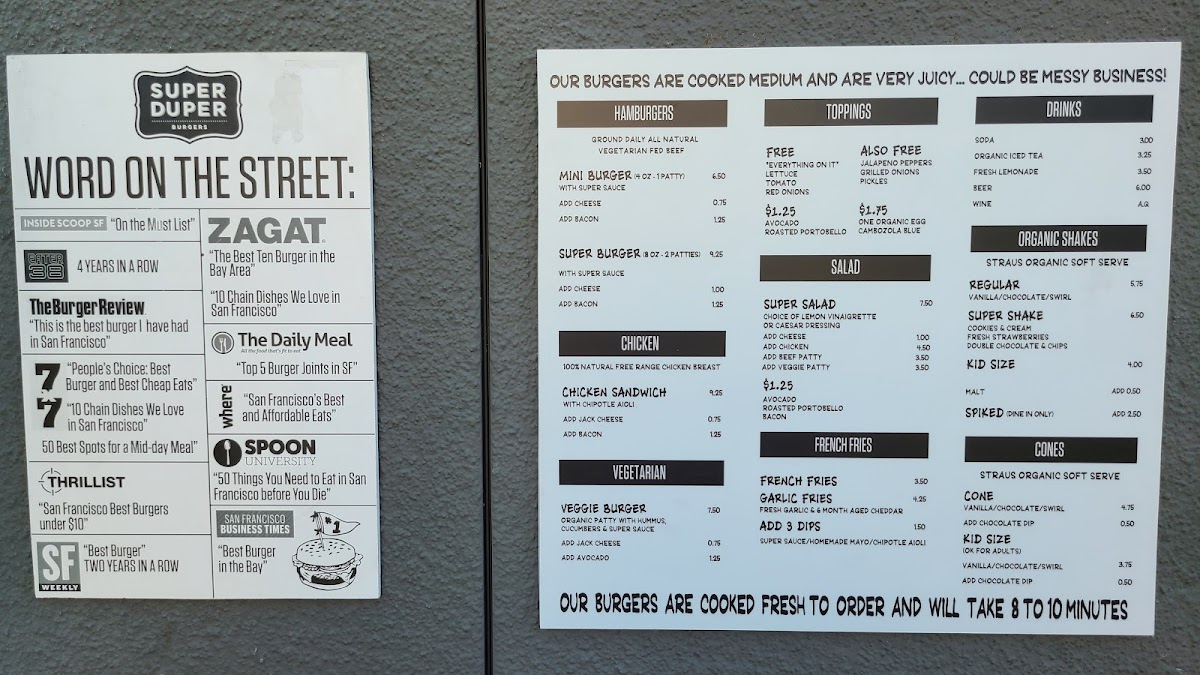 SUPER
DUPER
BURGERS
WORD ON THE STREET:
INSIDE SCOOP SF "On the Must List"
EATER
38
4 YEARS IN A ROW
TheBurgerReview
"This is the best burger I have had
in San Francisco"
7
"People's Choice: Best
Burger and Best Cheap Eats"
7
"10 Chain Dishes We Love
in San Francisco"
50 Best Spots for a Mid-day Meal"
THRILLIST
"San Francisco Best Burgers
under $10"
SF
WEEKLY
"Best Burger"
TWO YEARS IN A ROW
ZAGAT
"The Best Ten Burger in the
Bay Area"
"10 Chain Dishes We Love in
San Francisco"
The Daily Meal
All the food that's fit to eat
"Top 5 Burger Joints in SF"
where
"San Francisco's Best
and Affordable Eats"
SPOON
UNIVERSITY
"50 Things You Need to Eat in San
Francisco before You Die"
SAN FRANCISCO
BUSINESS TIMES
"Best Burger
in the Bay"
#1
OUR BURGERS ARE COOKED MEDIUM AND ARE VERY JUICY... COULD BE MESSY BUSINESS!
HAMBURGERS
GROUND DAILY ALL NATURAL
VEGETARIAN FED BEEF
MINI BURGER (4 OZ - 1 PATTY) 6.50
WITH SUPER SAUCE
ADD CHEESE 0.75
ADD BACON 1.25
SUPER BURGER (8 OZ - 2 PATTIES) 9.25
WITH SUPER SAUCE
ADD CHEESE 1.00
ADD BACON 1.25
CHICKEN
100% NATURAL FREE RANGE CHICKEN BREAST
CHICKEN SANDWICH 9.25
WITH CHIPOTLE AIOLI
ADD JACK CHEESE 0.75
ADD BACON 1.25
VEGETARIAN
VEGGIE BURGER 7.50
ORGANIC PATTY WITH HUMMUS,
CUCUMBERS & SUPER SAUCE
ADD JACK CHEESE 0.75
ADD AVOCADO 1.25
TOPPINGS
FREE
"EVERYTHING ON IT"
LETTUCE
TOMATO
RED ONIONS
ALSO FREE
JALAPENO PEPPERS
GRILLED ONIONS
PICKLES
$1.25
AVOCADO
ROASTED PORTOBELLO
$1.75
ONE ORGANIC EGG
CAMBOZOLA BLUE
SALAD
SUPER SALAD 7.50
CHOICE OF LEMON VINAIGRETTE
OR CAESAR DRESSING
ADD CHEESE 1.00
ADD CHICKEN 4.50
ADD BEEF PATTY 3.50
ADD VEGGIE PATTY 3.50
$1.25
AVOCADO
ROASTED PORTOBELLO
BACON
FRENCH FRIES
FRENCH FRIES 3.50
GARLIC FRIES 4.25
FRESH GARLIC & 6 MONTH AGED CHEDDAR
ADD 3 DIPS 1.50
SUPER SAUCE/HOMEMADE MAYO/CHIPOTLE AIOLI
DRINKS
SODA 3.00
ORGANIC ICED TEA 3.25
FRESH LEMONADE 3.50
BEER 6.00
WINE A.Q.
ORGANIC SHAKES
STRAUS ORGANIC SOFT SERVE
REGULAR 5.75
VANILLA/CHOCOLATE/SWIRL
SUPER SHAKE 6.50
COOKIES & CREAM
FRESH STRAWBERRIES
DOUBLE CHOCOLATE & CHIPS
KID SIZE 4.00
MALT ADD 0.50
SPIKED (DINE IN ONLY) ADD 2.50
CONES
STRAUS ORGANIC SOFT SERVE
CONE
VANILLA/CHOCOLATE/SWIRL 4.75
ADD CHOCOLATE DIP 0.50
KID SIZE
(OK FOR ADULTS)
VANILLA/CHOCOLATE/SWIRL 3.75
ADD CHOCOLATE DIP 0.50
OUR BURGERS ARE COOKED FRESH TO ORDER AND WILL TAKE 8 TO 10 MINUTES